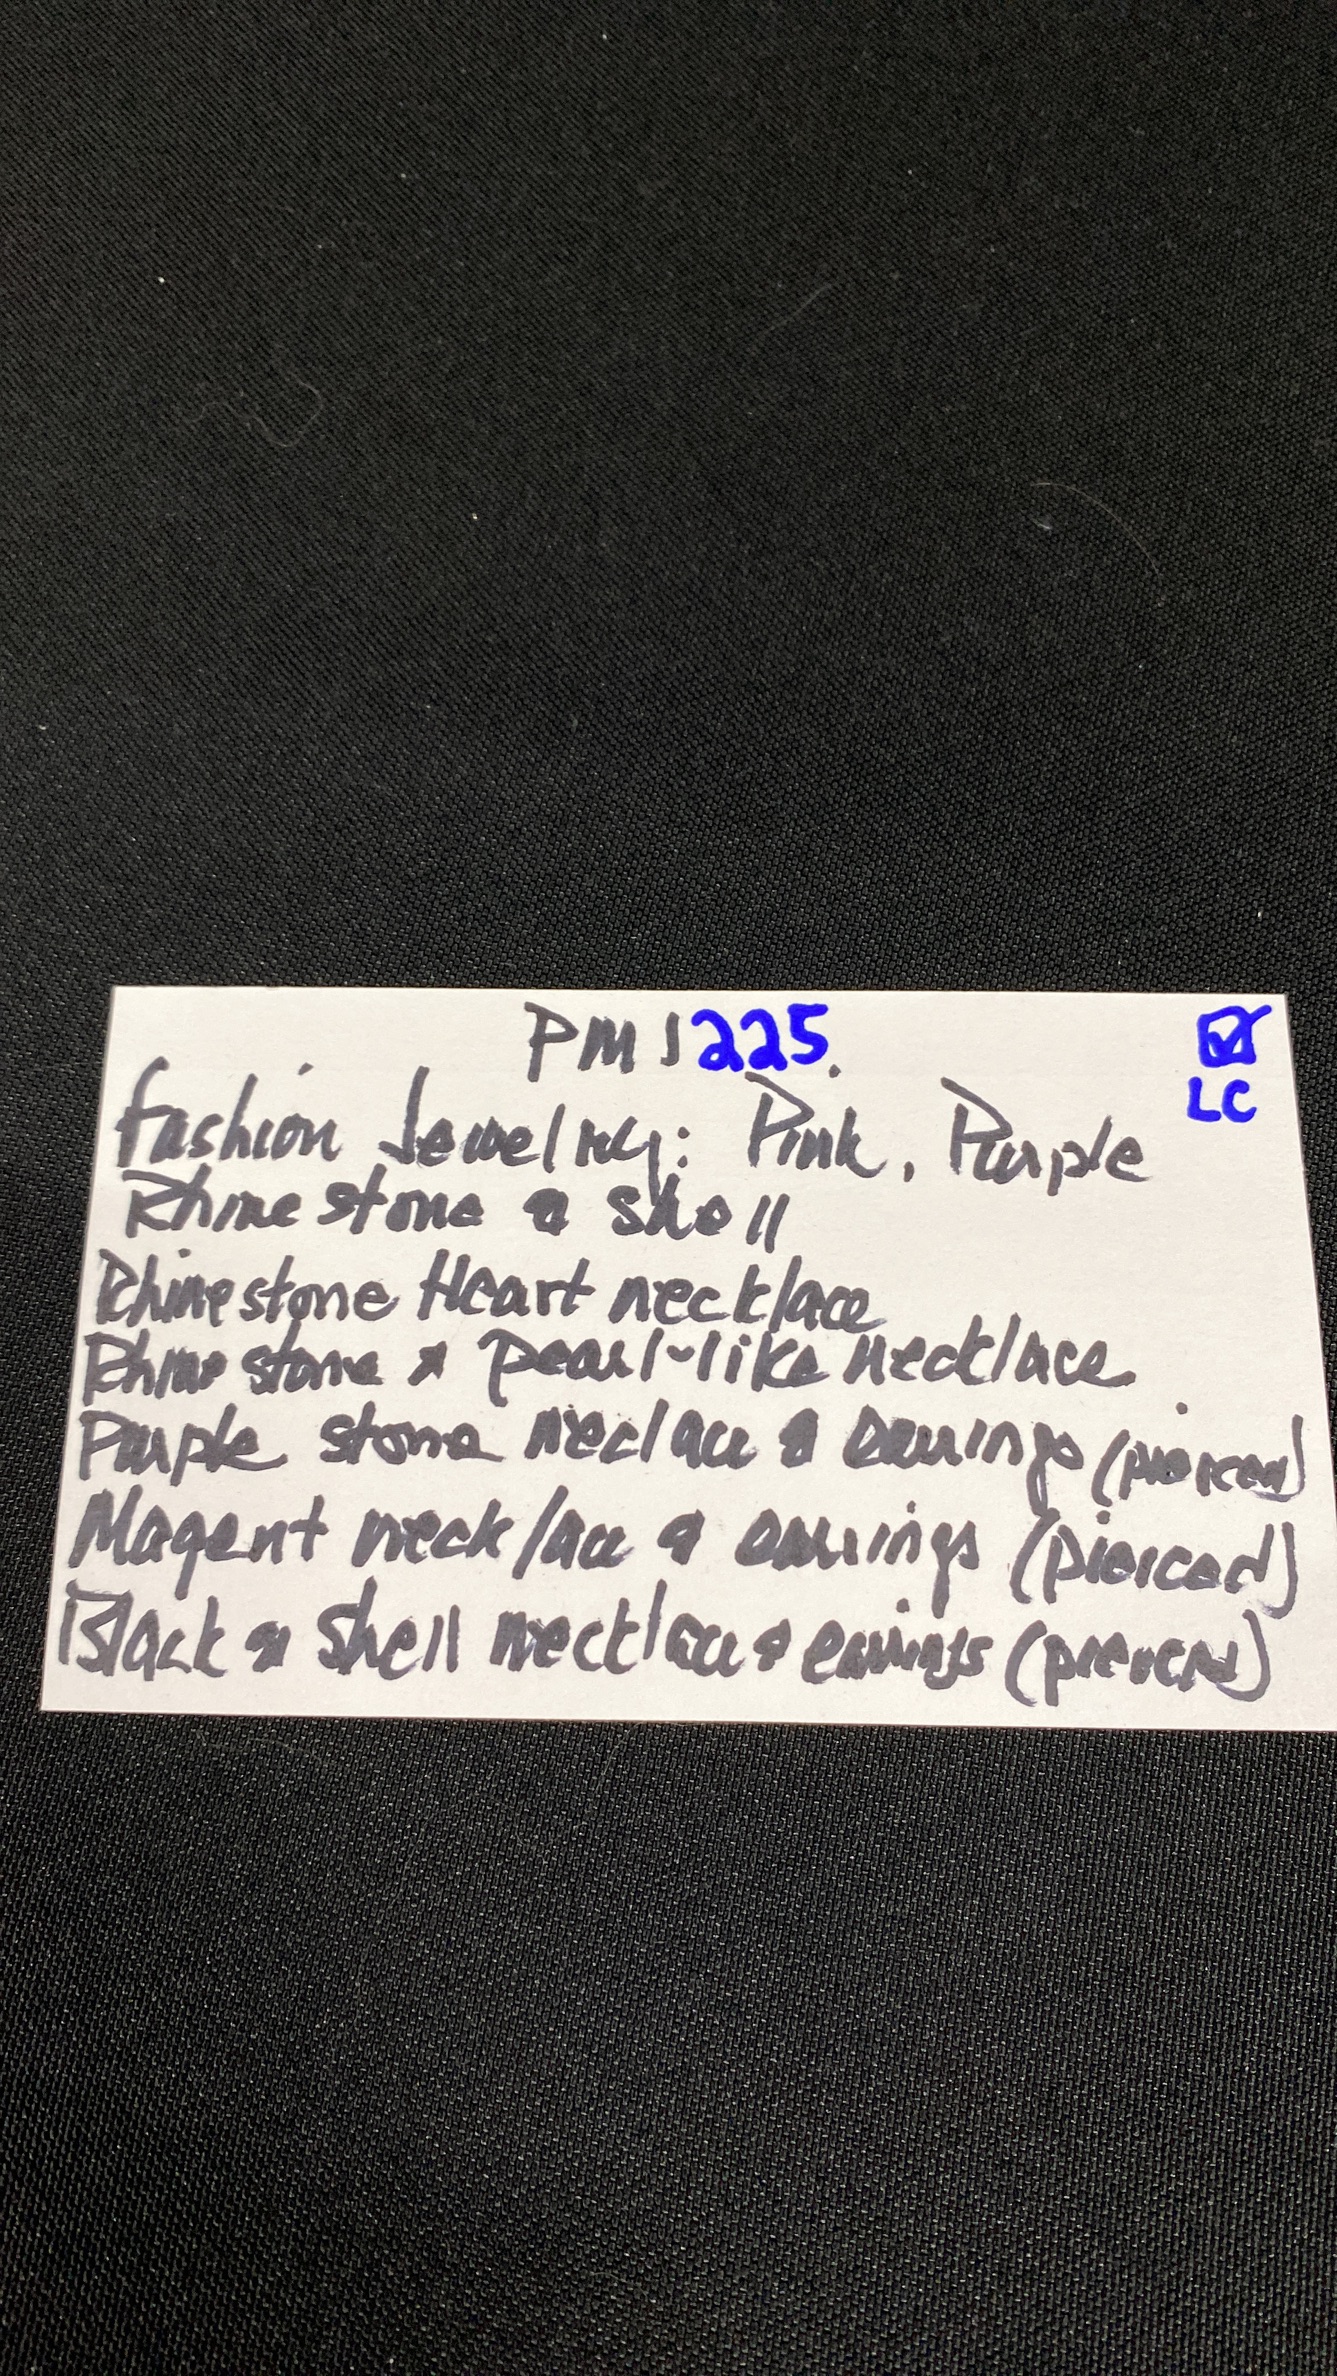 PM1225
☑
LC
Fashion Jewelry: Pink, Purple
Rhinestone & Shell
Rhinestone Heart necklace
Rhinestone & pearl-like necklace
Purple stone neclace & earrings (pierced)
Magent necklace & earrings (pierced)
Black & shell necklace & earrings (pierced)